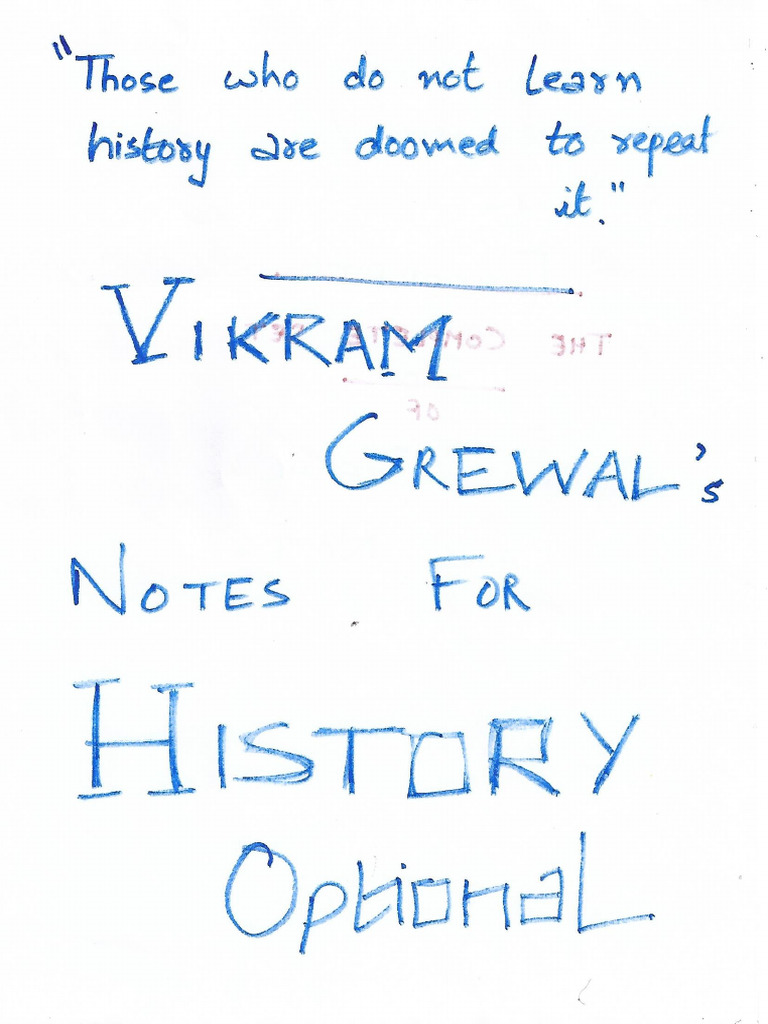 "Those who do not learn
history are doomed to repeat
it."
VIKRAM
THE COMPLETE
OF
GREWAL's
NOTES FOR
HISTORY
Optional